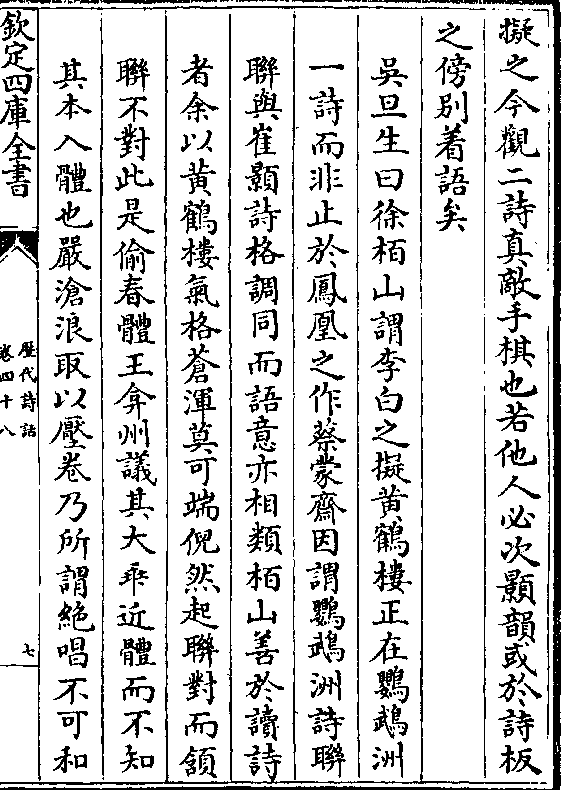 擬之今觀二詩真敵手棋也若他人必次顥韻或於詩板
之傍別着語矣
吳旦生曰徐栢山謂李白之擬黄鶴樓正在鸚鵡洲
一詩而非止於鳳凰之作蔡蒙齋因謂鸚鵡洲詩聯
聯與崔顥詩格調同而語意亦相類栢山善於讀詩
者余以黄鶴樓氣格蒼渾莫可端倪然起聯對而頷
聯不對此是偷春體王弇州議其大乖近體而不知
其本入體也嚴滄浪取以壓卷乃所謂絶唱不可和
欽定四庫全書
歷代詩話
卷四十八
七